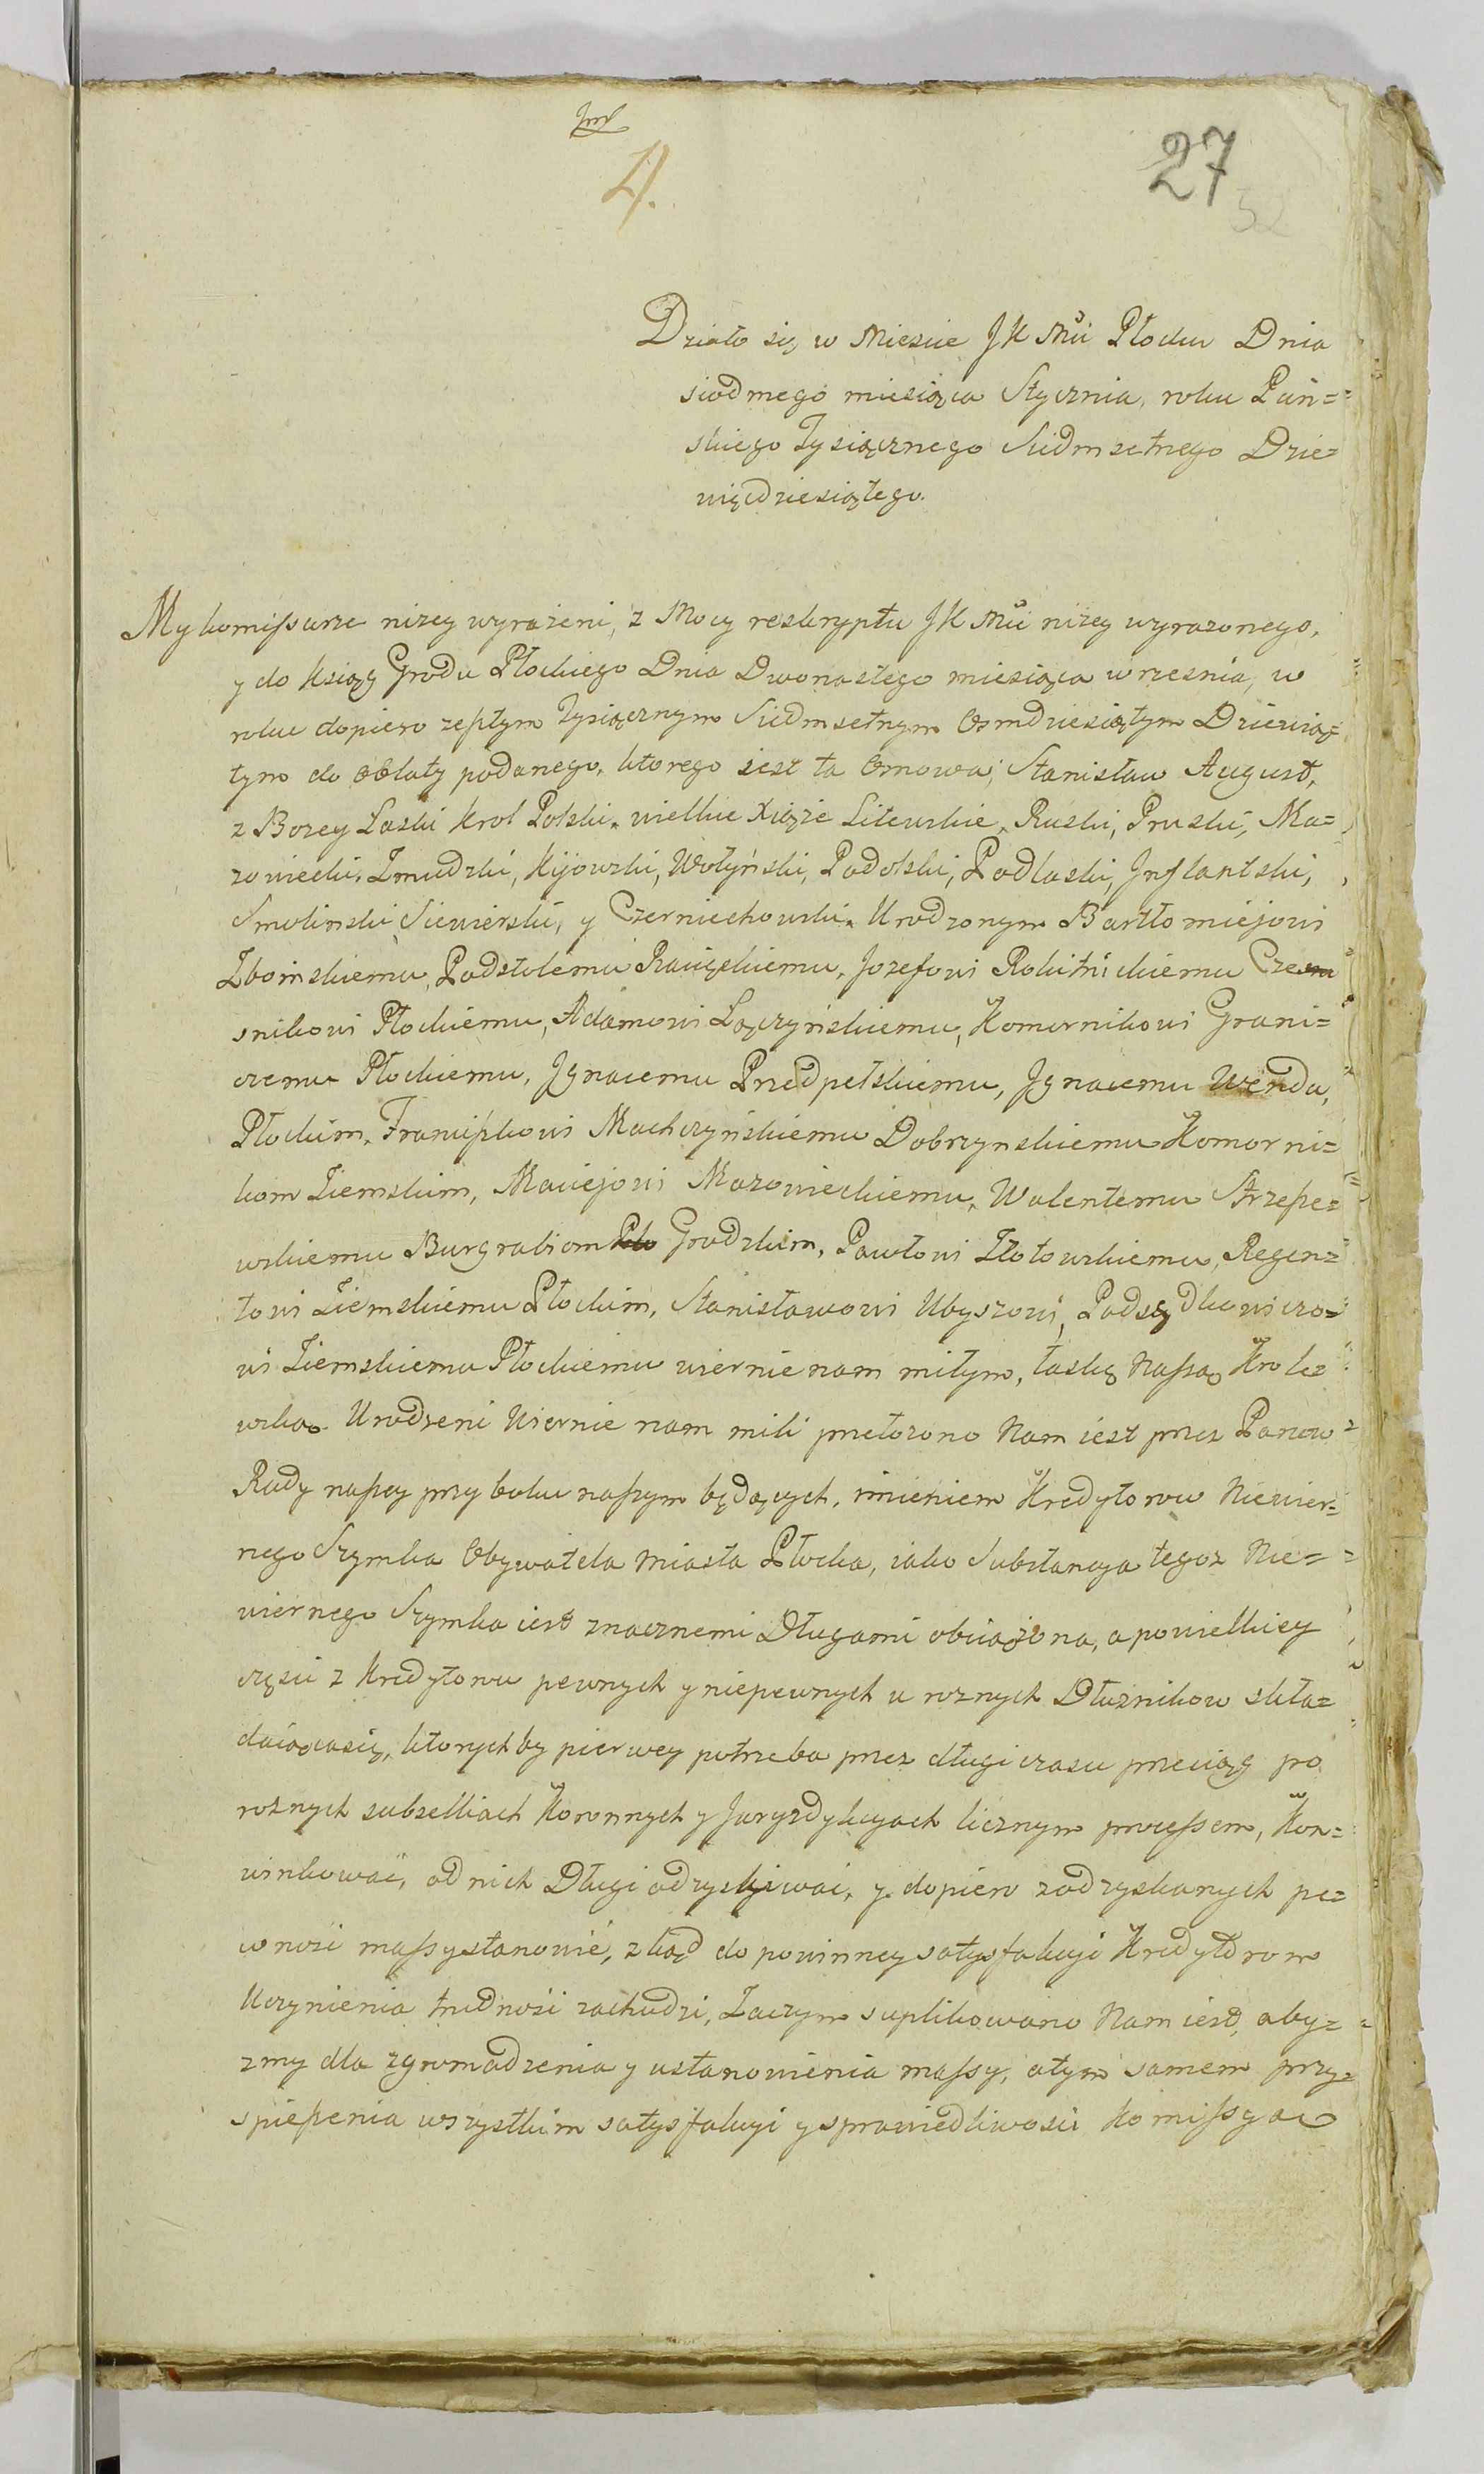 4.
27
52
Działo się w Miescie JK Mci Płocku Dnia
siodmego miesiąca Stycznia, roku Pań=
skiego Tysiącznego Siedmsetnego Dzie=
więdziesiątego.
My komissarze niżey wyrażeni, z Mocy reskryptu JK Mci niżey wyrazonego,
y do Ksiąg Grodu Płockiego Dnia Dwonastego miesiąca wrzesnia, w
roku dopiero zeszłym Tysiącznym Siedmsetnym Osmdziesiątym Dziewią=
tym do Oblaty podanego, ktorego jest ta Omowa; Stanisław August,
z Bozey Łaski Krol Polski, wielkie Xiąże Litewskie, Ruski, Pruski, Ma=
zowiecki, Zmudzki, Kijowski, Wołyński, Podolski, Podlaski, Inflantski,
Smolinski Siewierski, y Czerniechowski. Urodzonym Bartłomiejowi
Zboinskiemu, Podstolemu Raciąskiemu, Jozefowi Rokitnickiemu Cze
snikowi Płockiemu, Adamowi Łączyńskiemu, Komornikowi Grani=
cznemu Płockiemu, Jgnacemu Przedpełskiemu, Jgnacemu Wenda,
Płockim, Franciszkowi Machczyńskiemu Dobrzynskiemu Komorni=
kom Ziemskim, Maciejowi Mazowieckiemu, Walentemu Strzesze=
wskiemu Burgrabiom Grodzkim, Pawłowi Złotowskiemu, Regen=
towi Ziemskiemu Płockim, Stanisławowi Ubyszowi, Podsędkowiczo=
wi Ziemskiemu Płockiemu wiernie nam miłym, łaskę Naszą Krole
wską. Urodzeni Wiernie nam mili przełozono Nam iest przez Panow
Rady naszey przy boku naszym będących, imieniem Kredytorow Niewier=
nego Szymka Obywatela Miasta Płocka, iako Substancya tegoz Nie=
wiernego Szymka iest znacznemi Długami obciążona, a powielkiey
częsci z Kredytorow pewnych y niepewnych u roznych Dłużnikow skła=
daiącasię, ktorychby pierwey potrzeba przez długi czasu przeciąg po
roznych subselliach Koronnych y Juryzdykcyach licznym processem, Kon=
winkować, od nich Długi odzyskiwać, y dopiero z odzyskanych pe=
wnosć massy stanowić, zkąd do powinney satysfakcyi Kredytorom
Uczynienia trudnosć zachodzi, Zaczym suplikowano Nam iest, aby=
zmy dla zgromadzenia y ustanowienia massy, a tym samem przy=
spieszenia wszystkim satysfakcyi y sprawiedliwosci Komissya